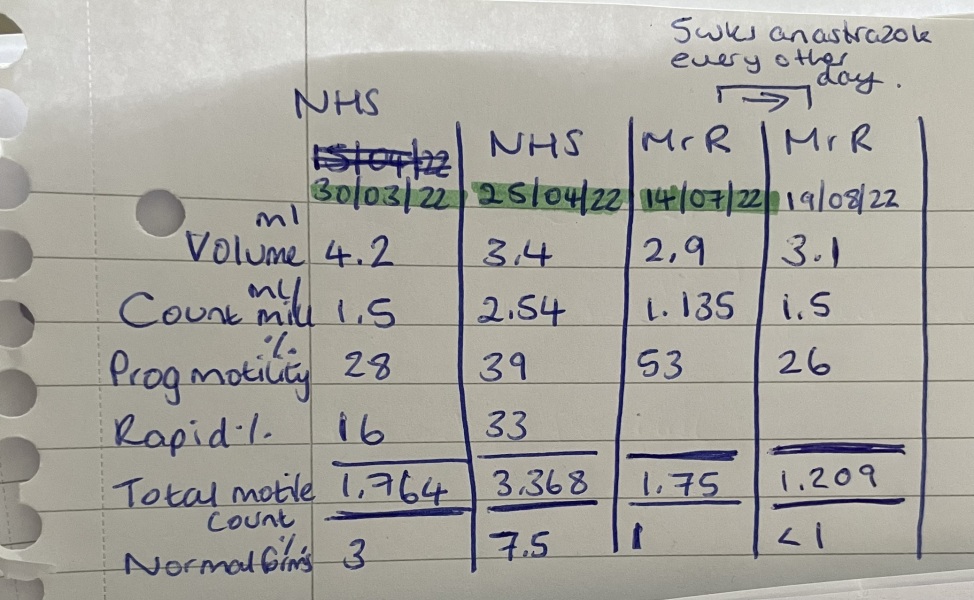 5wks anastrazole
every other
day.
NHS
15/04/22 NHS Mr R Mr R
30/03/22 25/04/22 14/07/22 19/08/22
ml
Volume 4.2 3.4 2.9 3.1
Count mill/ml 1.5 2.54 1.135 1.5
%
Prog motility 28 39 53 26
Rapid % 16 33
Total motile 1.764 3.368 1.75 1.209
count
Normal forms % 3 7.5 1 <1